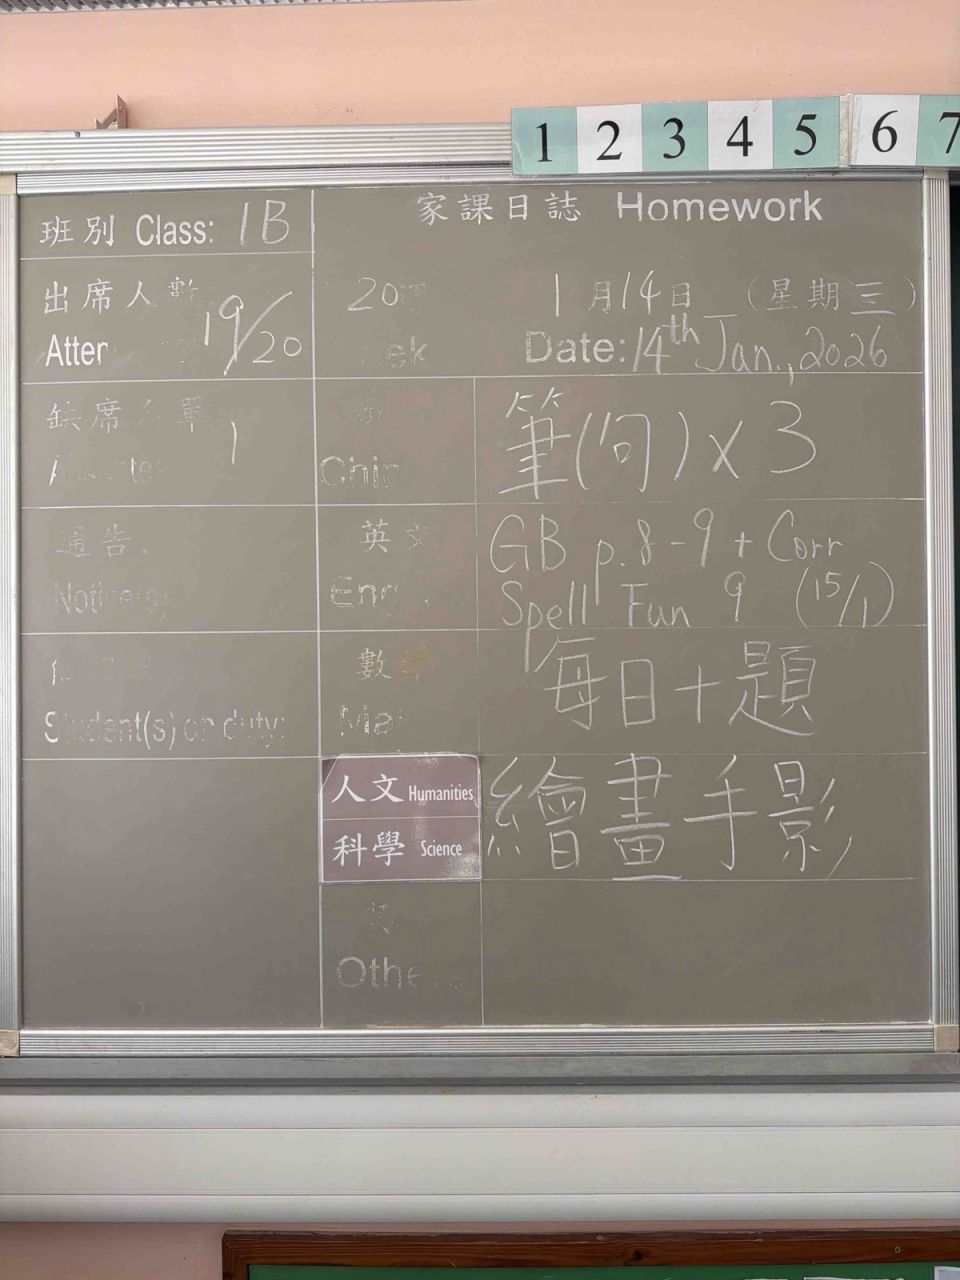 1 2 3 4 5 6 7
班別 Class: 1B
家課日誌 Homework
出席人數 19/20
20週
1月14日 (星期三)
Date: 14th Jan., 2026
缺席 單 1
筆(句) x 3
Chin
通告
英文
GB p.8-9 + Corr
Notice(s)
Eng
Spell Fun 9 (15/1)
數
每日十題
Student(s) on duty:
人文 Humanities
科學 Science
繪畫手影
Othe